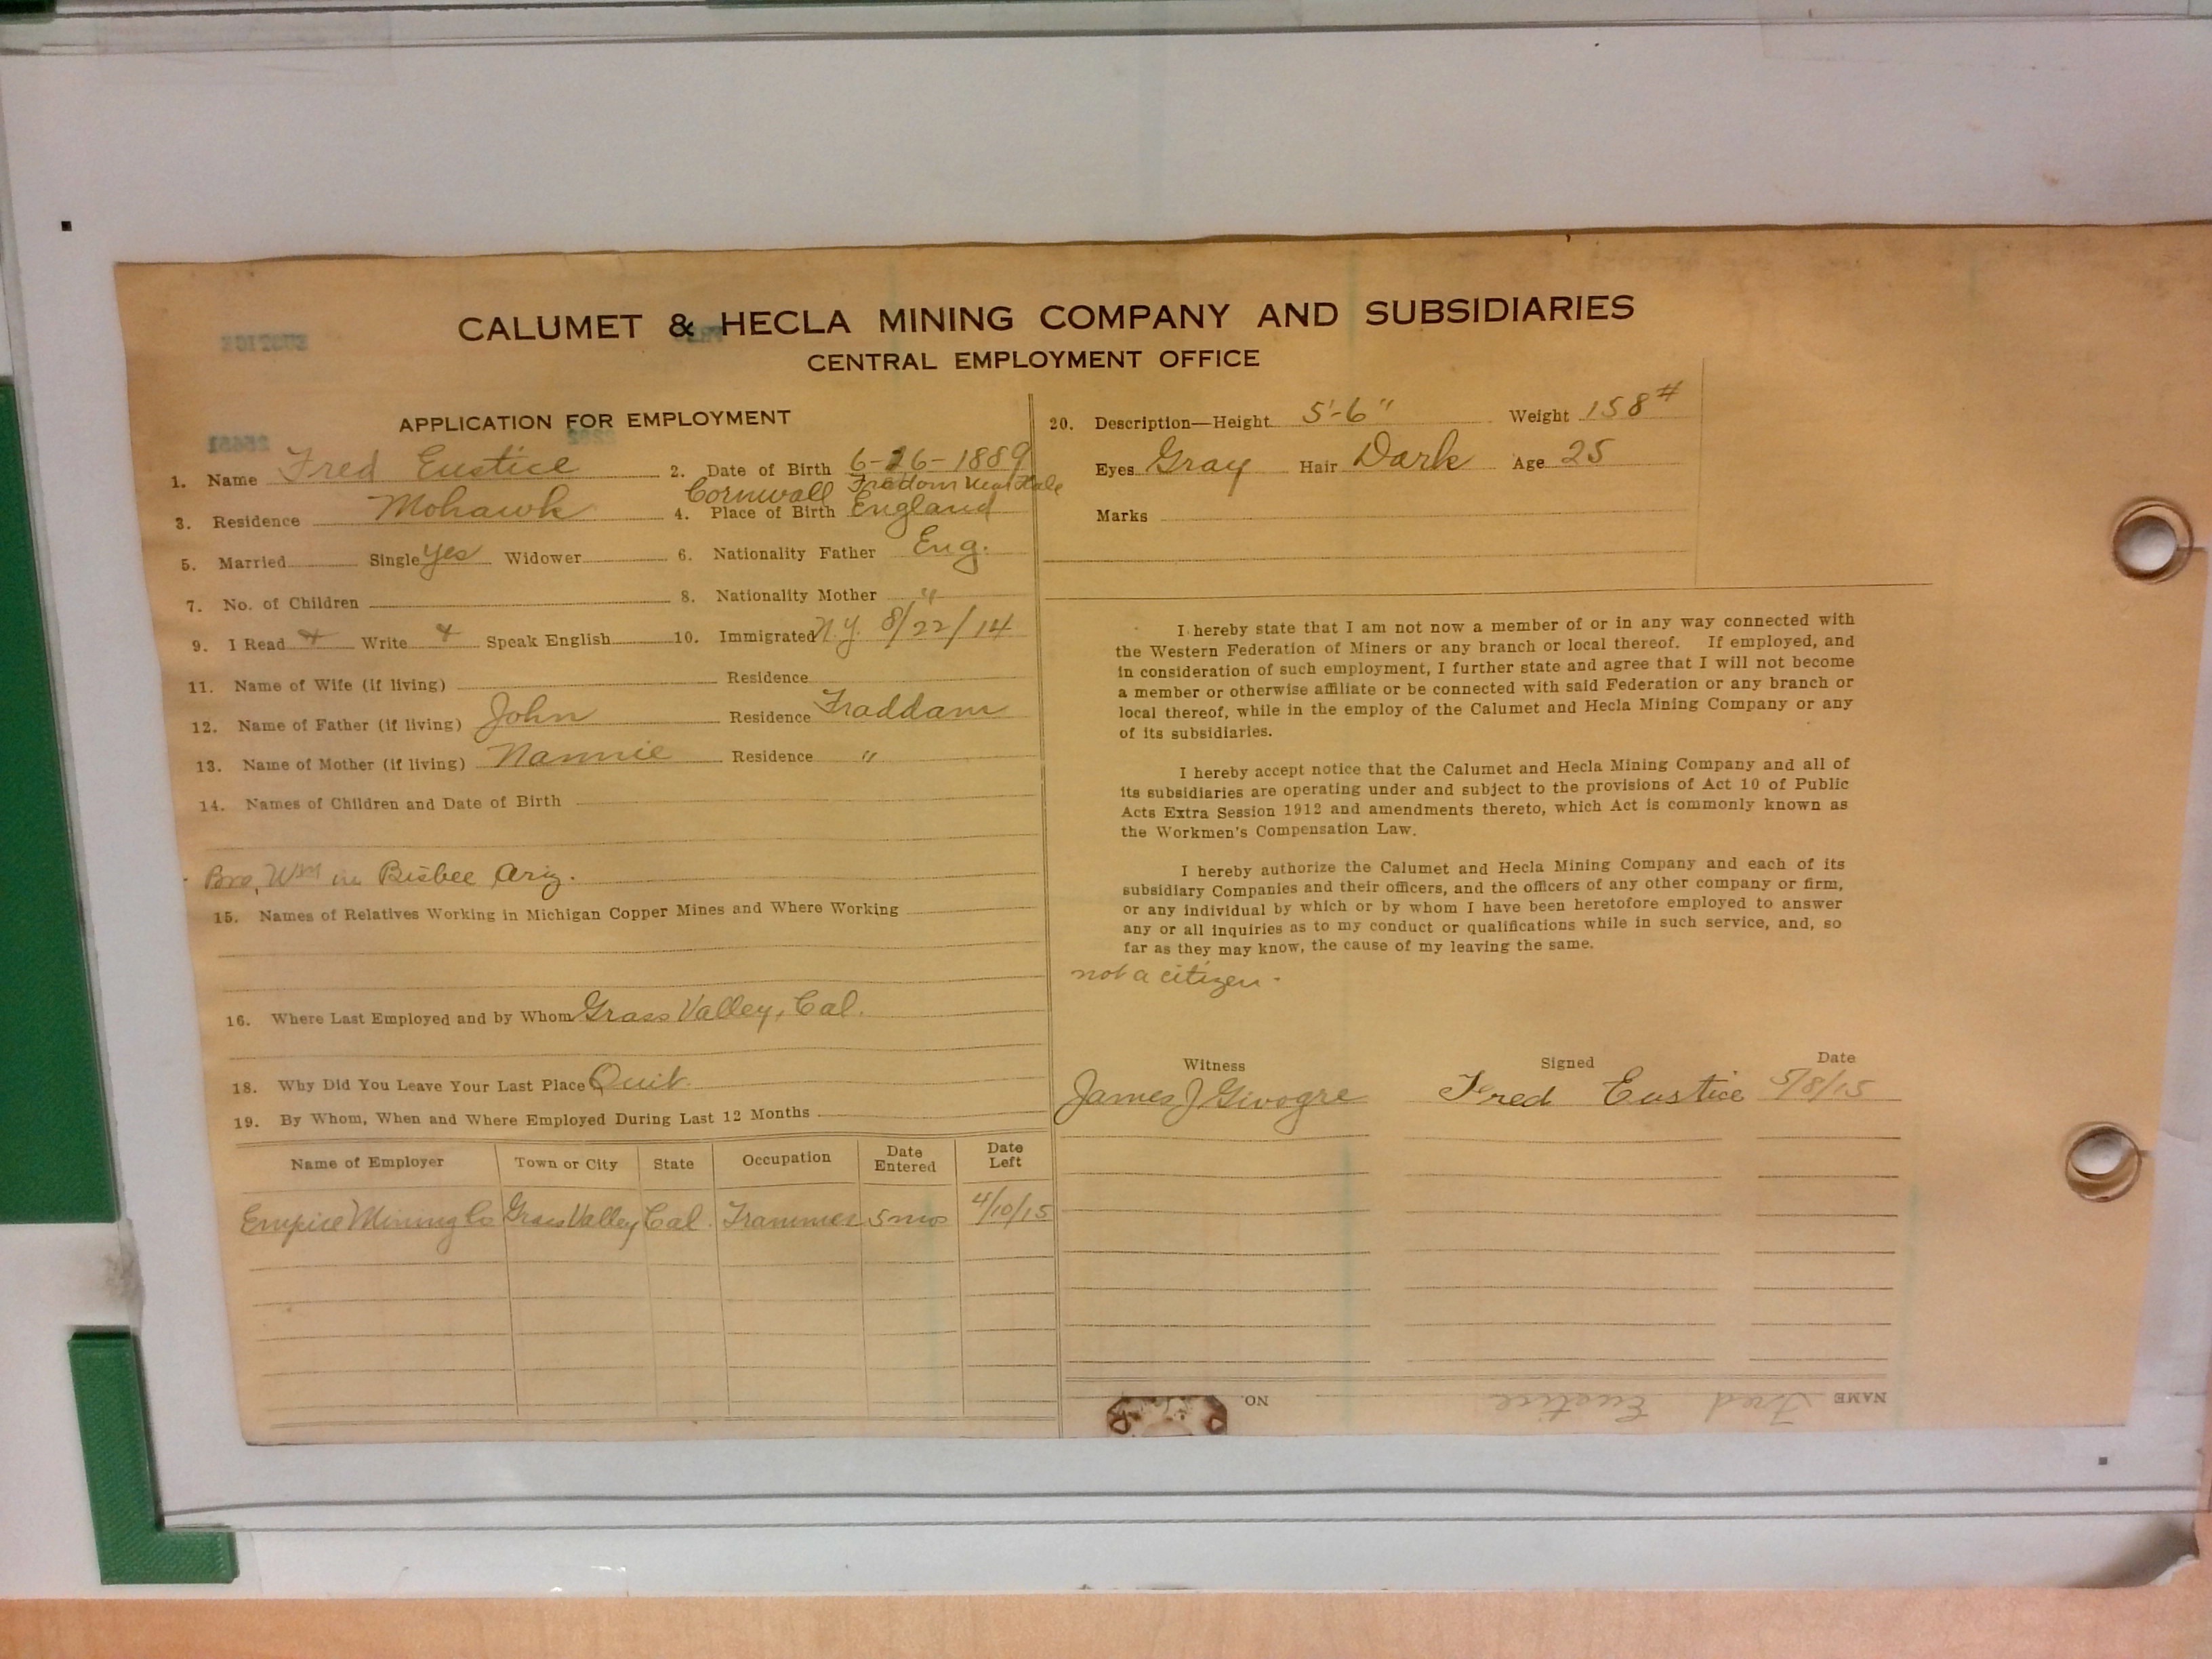 CALUMET & HECLA MINING COMPANY AND SUBSIDIARIES
CENTRAL EMPLOYMENT OFFICE
APPLICATION FOR EMPLOYMENT
1. Name Fred Eustice 2. Date of Birth 6-26-1889
Cornwall near Hale
3. Residence Mohawk 4. Place of Birth England
5. Married Single yes Widower 6. Nationality Father Eng.
7. No. of Children 8. Nationality Mother "
9. I Read Write Speak English 10. Immigrated N.Y. 8/22/14
11. Name of Wife (if living) Residence
12. Name of Father (if living) John Residence Fraddam
13. Name of Mother (if living) Nannie Residence "
14. Names of Children and Date of Birth
Bro, Wm in Bisbee Ariz.
15. Names of Relatives Working in Michigan Copper Mines and Where Working
16. Where Last Employed and by Whom Grass Valley, Cal.
18. Why Did You Leave Your Last Place Quit
19. By Whom, When and Where Employed During Last 12 Months
Name of Employer Town or City State Occupation Date Entered Date Left
Empire Mining Co Grass Valley Cal. Trammer 5 mos 4/10/15
20. Description—Height 5'-6" Weight 158#
Eyes Gray Hair Dark Age 25
Marks
I hereby state that I am not now a member of or in any way connected with
the Western Federation of Miners or any branch or local thereof. If employed, and
in consideration of such employment, I further state and agree that I will not become
a member or otherwise affiliate or be connected with said Federation or any branch or
local thereof, while in the employ of the Calumet and Hecla Mining Company or any
of its subsidiaries.
I hereby accept notice that the Calumet and Hecla Mining Company and all of
its subsidiaries are operating under and subject to the provisions of Act 10 of Public
Acts Extra Session 1912 and amendments thereto, which Act is commonly known as
the Workmen's Compensation Law.
I hereby authorize the Calumet and Hecla Mining Company and each of its
subsidiary Companies and their officers, and the officers of any other company or firm,
or any individual by which or by whom I have been heretofore employed to answer
any or all inquiries as to my conduct or qualifications while in such service, and, so
far as they may know, the cause of my leaving the same.
not a citizen -
Witness Signed Date
James J Givogre Fred Eustice 5/8/15
NAME Fred Eustice NO.